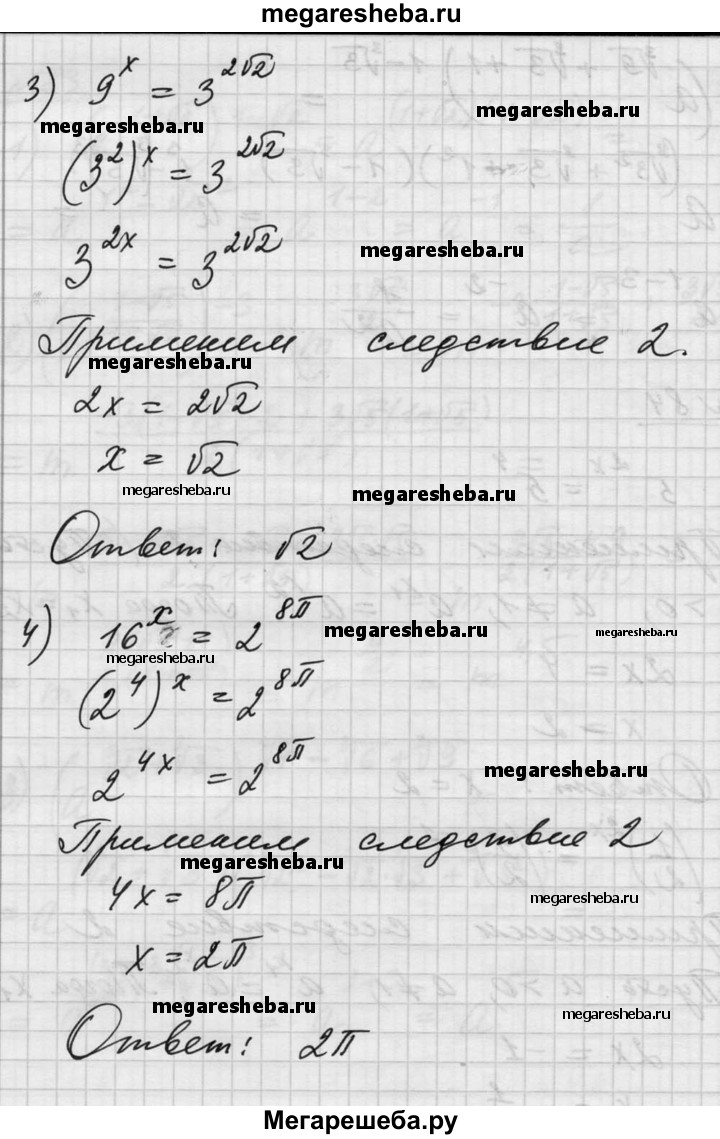 megaresheba.ru
3) 9^x = 3^{2√2}
megaresheba.ru
megaresheba.ru
(3^2)^x = 3^{2√2}
3^{2x} = 3^{2√2}
megaresheba.ru
Применим следствие 2.
megaresheba.ru
2x = 2√2
x = √2
megaresheba.ru
megaresheba.ru
Ответ: √2
4) 16^x = 2^{8π}
megaresheba.ru
megaresheba.ru
megaresheba.ru
(2^4)^x = 2^{8π}
2^{4x} = 2^{8π}
megaresheba.ru
Применим следствие 2
megaresheba.ru
4x = 8π
megaresheba.ru
x = 2π
megaresheba.ru
megaresheba.ru
Ответ: 2π
Мегарешеба.ру